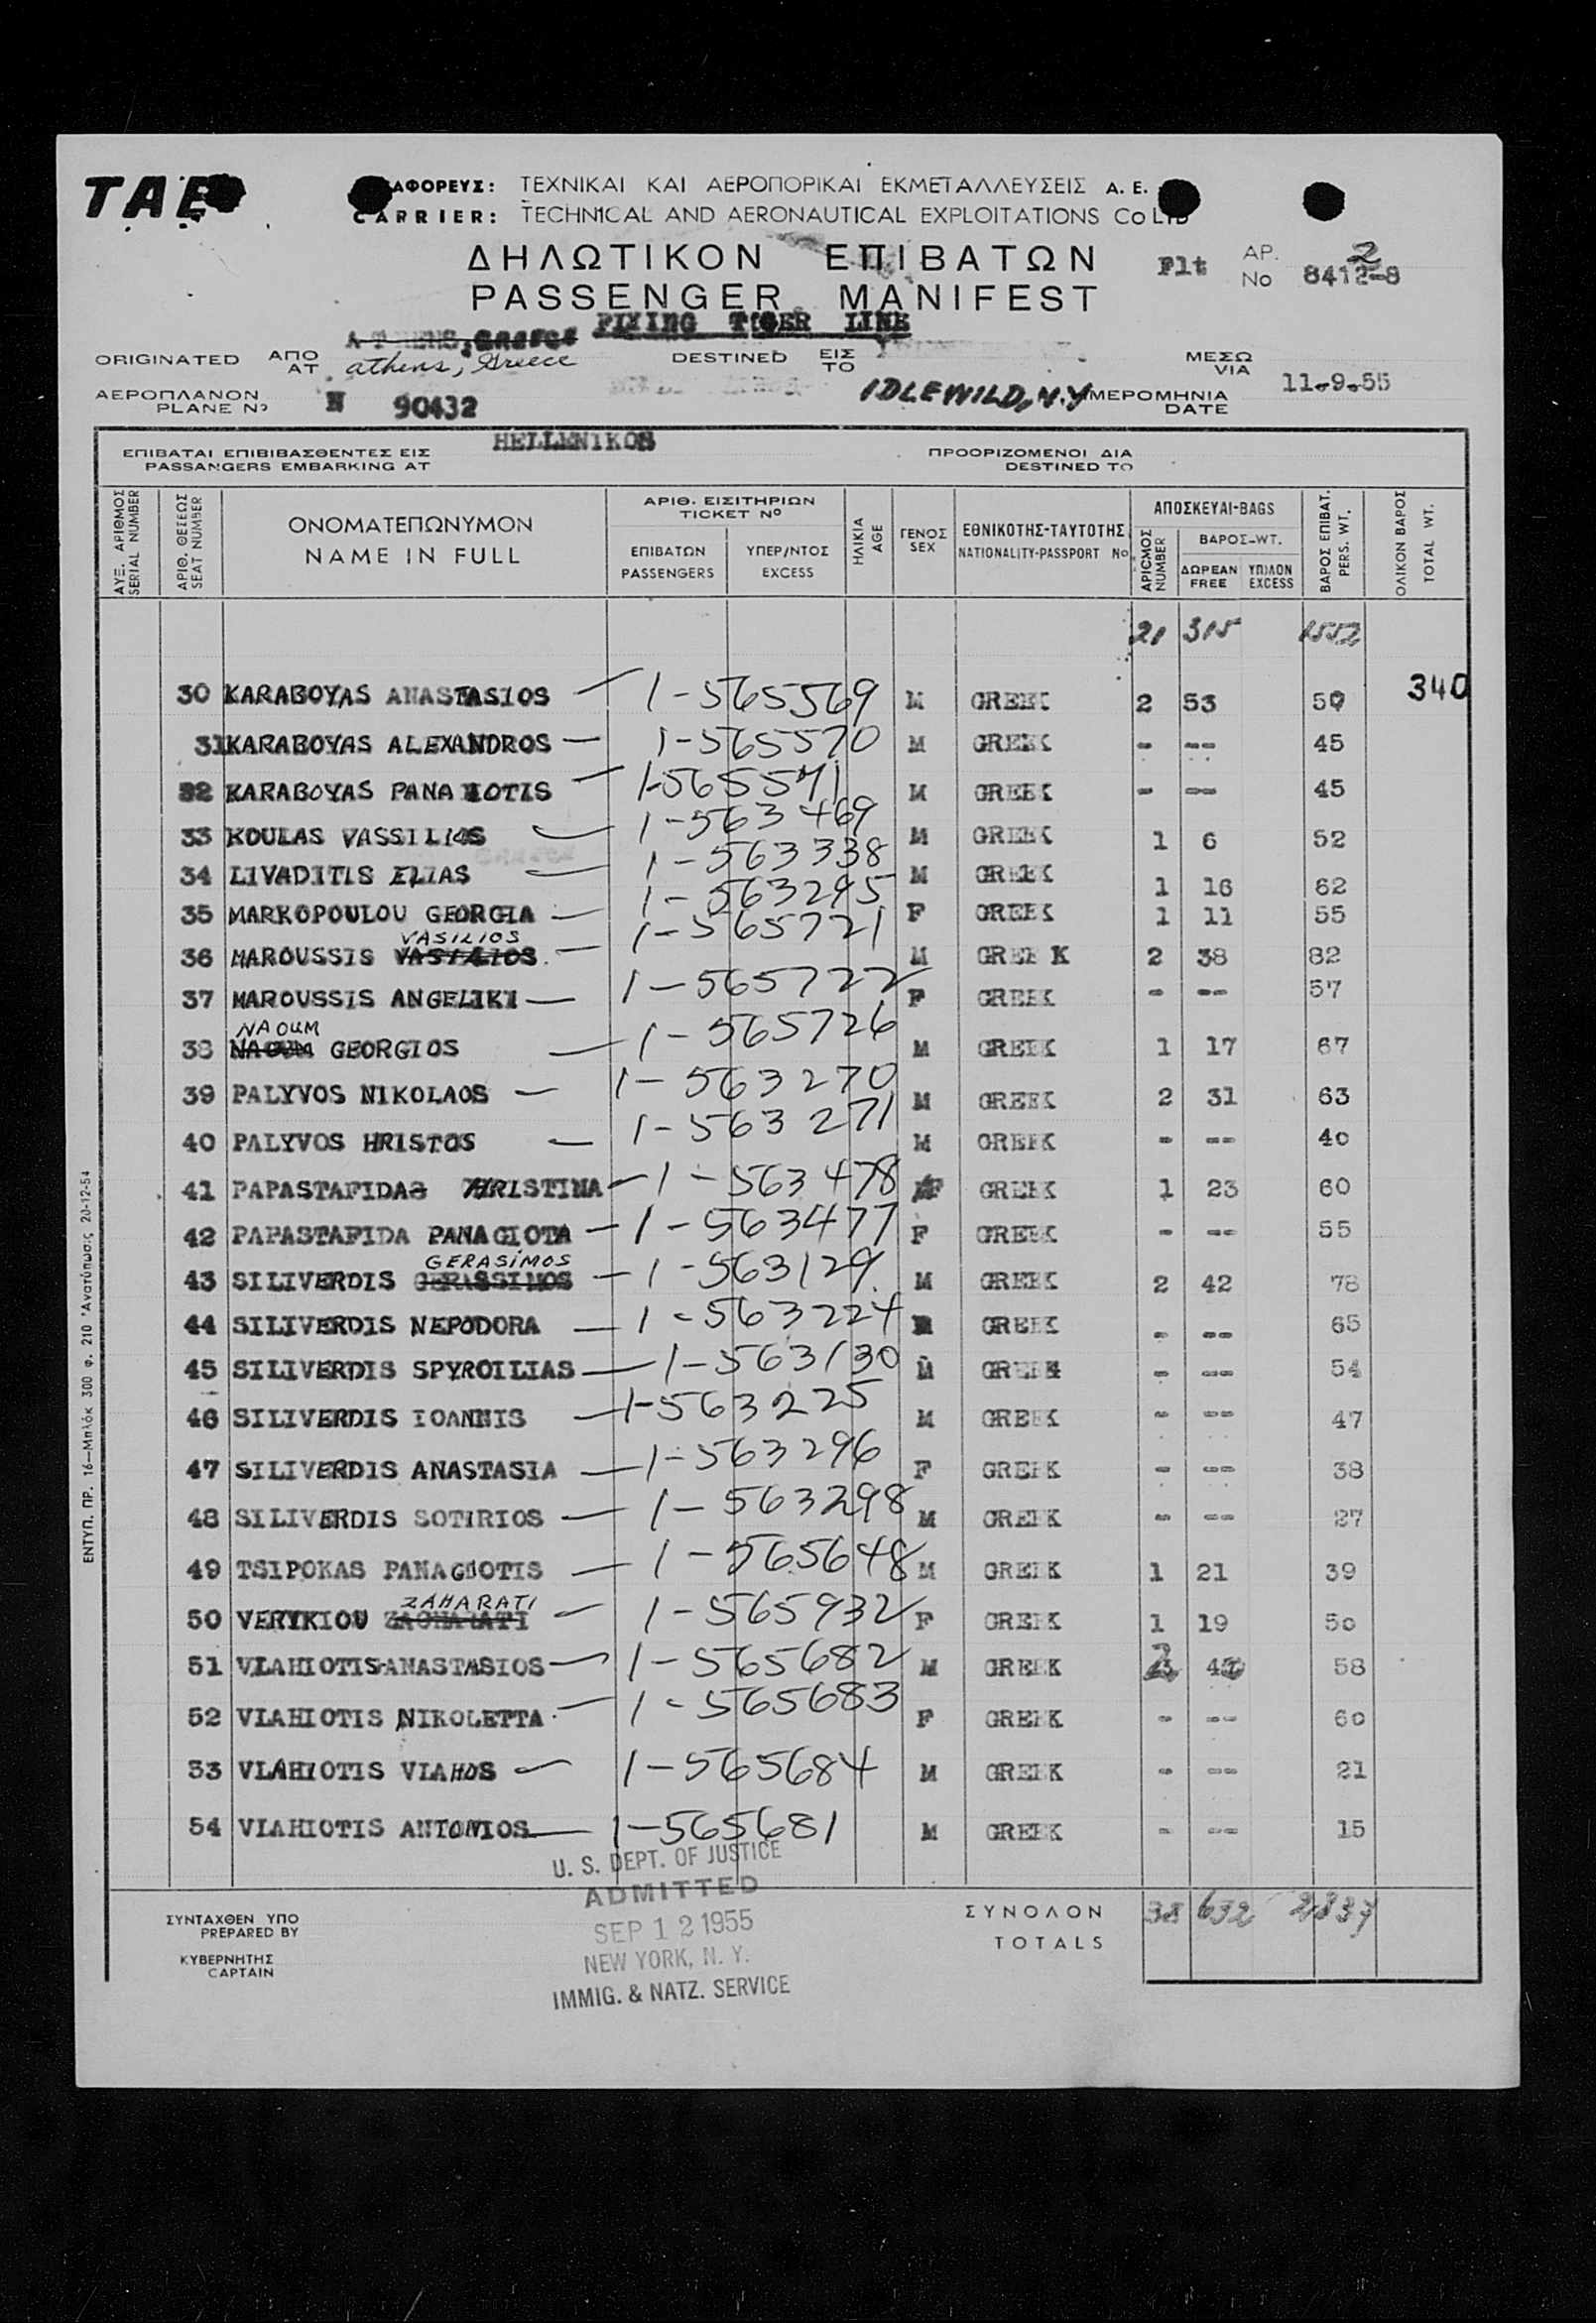 TAE
ΑΦΟΡΕΥΣ: ΤΕΧΝΙΚΑΙ ΚΑΙ ΑΕΡΟΠΟΡΙΚΑΙ ΕΚΜΕΤΑΛΛΕΥΣΕΙΣ Α. Ε.
CARRIER: TECHNICAL AND AERONAUTICAL EXPLOITATIONS Co LTD
ΔΗΛΩΤΙΚΟΝ ΕΠΙΒΑΤΩΝ
PASSENGER MANIFEST
Flt ΑΡ. No 8412-8 2
FLYING TIGER LINE
ATHENS, GREECE
ORIGINATED ΑΠΟ AT athens, Greece DESTINED ΕΙΣ TO ΜΕΣΩ VIA
ΑΕΡΟΠΛΑΝΟΝ PLANE No N 90432 IDLEWILD, N.Y ΗΜΕΡΟΜΗΝΙΑ DATE 11.9.55
ΕΠΙΒΑΤΑΙ ΕΠΙΒΙΒΑΣΘΕΝΤΕΣ ΕΙΣ HELLENIKOS ΠΡΟΟΡΙΖΟΜΕΝΟΙ ΔΙΑ
PASSANGERS EMBARKING AT DESTINED TO
ΑΥΞ. ΑΡΙΘΜΟΣ SERIAL NUMBER
ΑΡΙΘ. ΘΕΣΕΩΣ SEAT NUMBER
ΟΝΟΜΑΤΕΠΩΝΥΜΟΝ
NAME IN FULL
ΑΡΙΘ. ΕΙΣΙΤΗΡΙΩΝ
TICKET No
ΕΠΙΒΑΤΩΝ PASSENGERS
ΥΠΕΡ/ΝΤΟΣ EXCESS
ΗΛΙΚΙΑ AGE
ΓΕΝΟΣ SEX
ΕΘΝΙΚΟΤΗΣ-ΤΑΥΤΟΤΗΣ
NATIONALITY-PASSPORT No
ΑΠΟΣΚΕΥΑΙ-BAGS
ΑΡΙΘΜΟΣ NUMBER
ΒΑΡΟΣ-WT.
ΔΩΡΕΑΝ FREE
ΥΠ)ΛΟΝ EXCESS
ΒΑΡΟΣ ΕΠΙΒΑΤ. PERS. WT.
ΟΛΙΚΟΝ ΒΑΡΟΣ TOTAL WT.
21 315 1552
30 KARABOYAS ANASTASIOS — 1-565569 M GREEK 2 53 50 340
31 KARABOYAS ALEXANDROS — 1-565570 M GREEK - -- 45
32 KARABOYAS PANAIOTIS — 1-565571 M GREEK - -- 45
33 KOULAS VASSILIOS — 1-563469 M GREEK 1 6 52
34 LIVADITIS ELIAS — 1-563338 M GREEK 1 16 62
35 MARKOPOULOU GEORGIA — 1-563295 F GREEK 1 11 55
VASILIOS
36 MAROUSSIS VASILIOS — 1-565721 M GREEK 2 38 82
37 MAROUSSIS ANGELIKI — 1-565722 F GREEK - -- 57
NAOUM
38 NAOUM GEORGIOS — 1-565726 M GREEK 1 17 67
39 PALYVOS NIKOLAOS — 1-563270 M GREEK 2 31 63
40 PALYVOS HRISTOS — 1-563271 M GREEK - -- 40
41 PAPASTAFIDAS HRISTINA — 1-563478 F GREEK 1 23 60
42 PAPASTAFIDA PANAGIOTA — 1-563477 F GREEK - -- 55
GERASIMOS
43 SILIVERDIS GERASSIMOS — 1-563129 M GREEK 2 42 78
44 SILIVERDIS NEPODORA — 1-563224 GREEK - -- 65
45 SILIVERDIS SPYROILIAS — 1-563130 M GREEK - -- 54
46 SILIVERDIS IOANNIS — 1-563225 M GREEK - -- 47
47 SILIVERDIS ANASTASIA — 1-563296 F GREEK - -- 38
48 SILIVERDIS SOTIRIOS — 1-563298 M GREEK - -- 27
49 TSIPOKAS PANAGIOTIS — 1-565648 M GREEK 1 21 39
ZAHARATI
50 VERYKIOU ZACHARATI — 1-565932 F GREEK 1 19 50
51 VLAHIOTIS-ANASTASIOS — 1-565682 M GREEK 2 58
52 VLAHIOTIS NIKOLETTA — 1-565683 F GREEK - -- 60
53 VLAHIOTIS VLAHOS — 1-565684 M GREEK - -- 21
54 VLAHIOTIS ANTONIOS — 1-565681 M GREEK - -- 15
U. S. DEPT. OF JUSTICE
ADMITTED
SEP 12 1955
NEW YORK, N. Y.
IMMIG. & NATZ. SERVICE
ΣΥΝΤΑΧΘΕΝ ΥΠΟ
PREPARED BY
ΚΥΒΕΡΝΗΤΗΣ
CAPTAIN
ΣΥΝΟΛΟΝ
TOTALS
38 632 2837
ΕΝΤΥΠ. ΠΡ. 16—Μπλόκ 300 φ. 210 'Ανατύπωσις 20-12-54